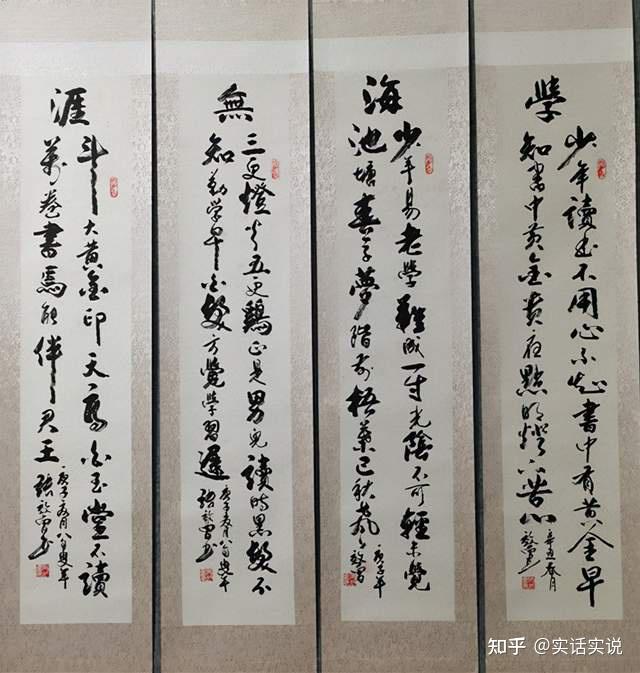 學
少年讀书不用心不知書中有黄金早
知書中黄金貴夜點明燈下苦心
辛丑春月
海
少年易老學難成一寸光陰不可輕未覺
池塘春草夢階前梧葉已秋聲
庚子年
無
三更燈火五更鷄正是男兒讀時黑髮不
知勤學早白髮方覺學習遲
庚子
涯
斗大黄金印天高白玉堂不讀
萬卷書焉能伴君王
庚子
知乎 @实话实说